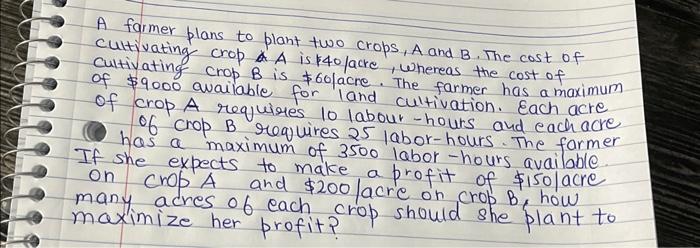 A farmer plans to plant two crops, A and B. The cost of
cultivating crop A is $40/acre, whereas the cost of
cultivating crop B is $60/acre. The farmer has a maximum
of $9000 available for land cultivation. Each acre
of crop A requires 10 labour-hours and each acre
of crop B requires 25 labor-hours. The farmer
has a maximum of 3500 labor-hours available.
If she expects to make a profit of $150/acre
on crop A and $200/acre on crop B, how
many acres of each crop should she plant to
maximize her profit?